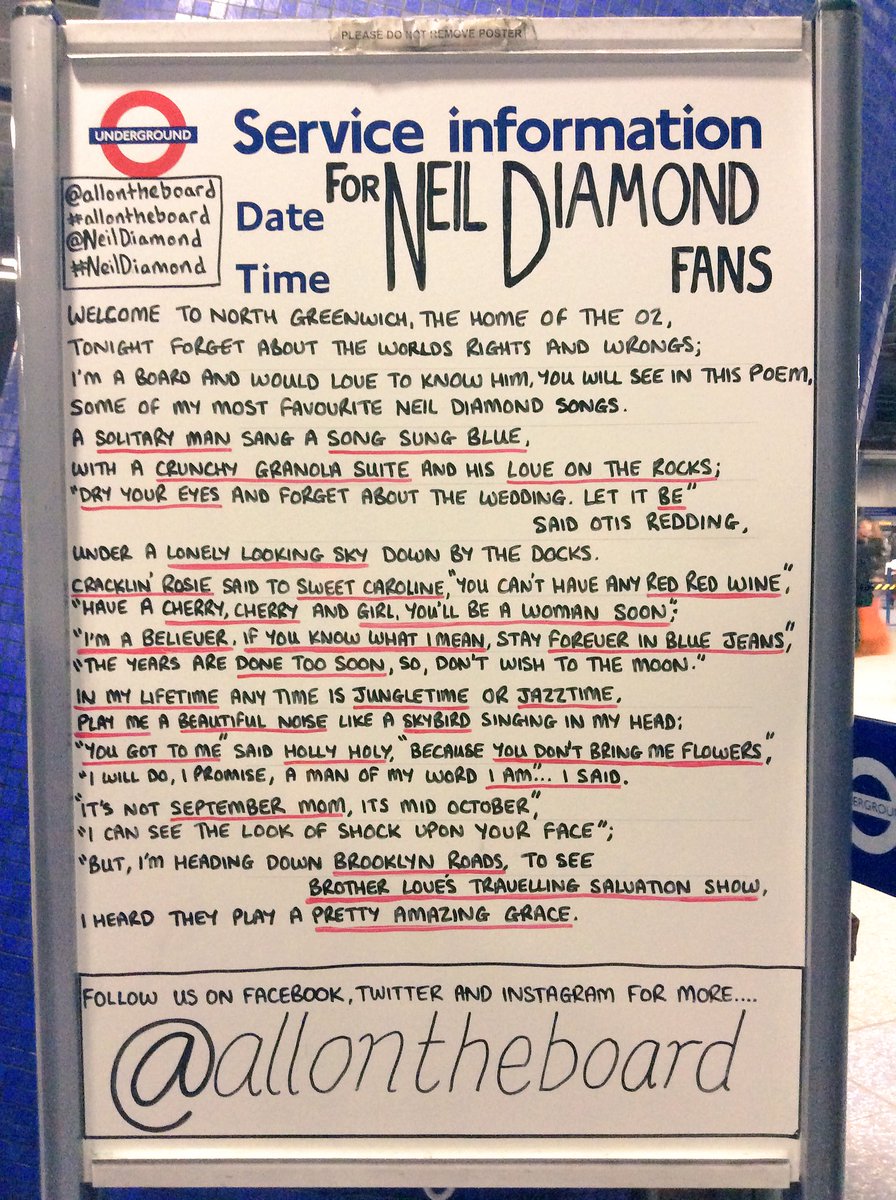 PLEASE DO NOT REMOVE POSTER
UNDERGROUND
Service information
FOR NEIL DIAMOND
FANS
Date
Time
@allontheboard
#allontheboard
@NeilDiamond
#NeilDiamond
WELCOME TO NORTH GREENWICH, THE HOME OF THE O2,
TONIGHT FORGET ABOUT THE WORLDS RIGHTS AND WRONGS;
I'M A BOARD AND WOULD LOVE TO KNOW HIM, YOU WILL SEE IN THIS POEM,
SOME OF MY MOST FAVOURITE NEIL DIAMOND SONGS.
A SOLITARY MAN SANG A SONG SUNG BLUE,
WITH A CRUNCHY GRANOLA SUITE AND HIS LOVE ON THE ROCKS;
"DRY YOUR EYES AND FORGET ABOUT THE WEDDING. LET IT BE"
SAID OTIS REDDING,
UNDER A LONELY LOOKING SKY DOWN BY THE DOCKS.
CRACKLIN' ROSIE SAID TO SWEET CAROLINE, "YOU CAN'T HAVE ANY RED RED WINE",
"HAVE A CHERRY, CHERRY AND GIRL, YOU'LL BE A WOMAN SOON";
"I'M A BELIEVER, IF YOU KNOW WHAT I MEAN, STAY FOREVER IN BLUE JEANS",
"THE YEARS ARE DONE TOO SOON, SO, DON'T WISH TO THE MOON."
IN MY LIFETIME ANY TIME IS JUNGLETIME OR JAZZTIME,
PLAY ME A BEAUTIFUL NOISE LIKE A SKYBIRD SINGING IN MY HEAD;
"YOU GOT TO ME" SAID HOLLY HOLY, "BECAUSE YOU DON'T BRING ME FLOWERS",
"I WILL DO, I PROMISE, A MAN OF MY WORD I AM"... I SAID.
"IT'S NOT SEPTEMBER MOM, ITS MID OCTOBER",
"I CAN SEE THE LOOK OF SHOCK UPON YOUR FACE";
"BUT, I'M HEADING DOWN BROOKLYN ROADS, TO SEE
BROTHER LOVE'S TRAVELLING SALVATION SHOW,
I HEARD THEY PLAY A PRETTY AMAZING GRACE.
FOLLOW US ON FACEBOOK, TWITTER AND INSTAGRAM FOR MORE....
@allontheboard
ERGROU